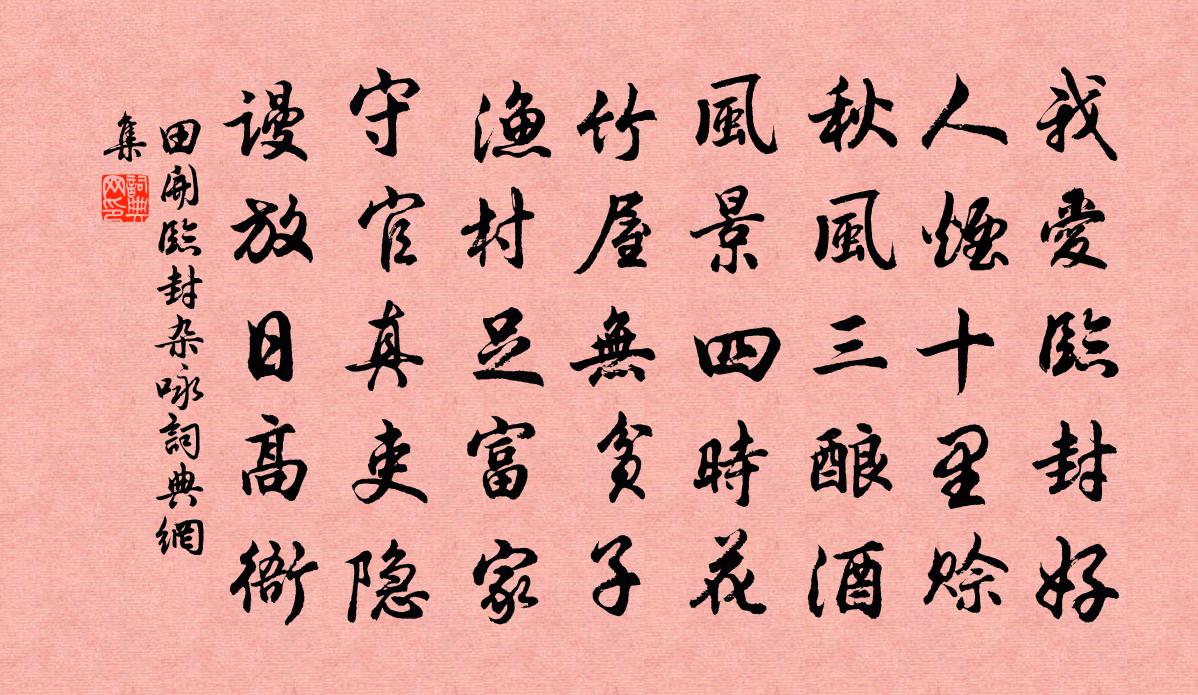 我愛臨封好
人煙十里賒
秋風三酿酒
風景四時花
竹屋無貧子
漁村足富家
守官真吏隐
谩放日高衙
田開臨封杂咏詞典網
集
詞典网印